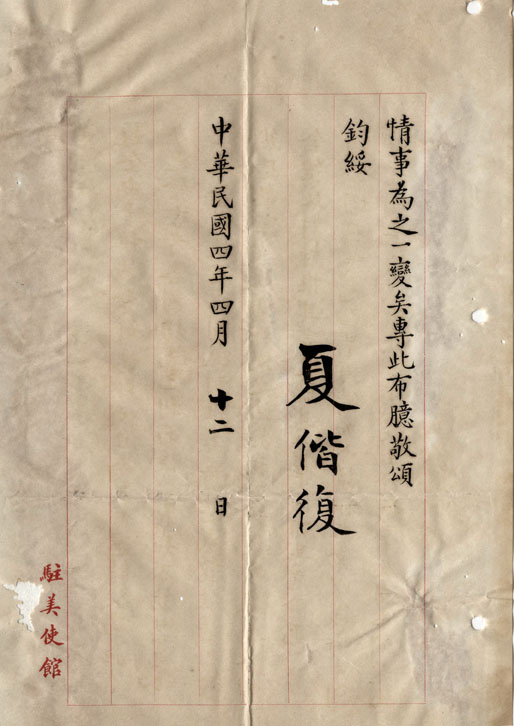 情事為之一變矣專此布臆敬頌
鈞綏
夏偕復
中華民國四年四月十二日
駐美使館